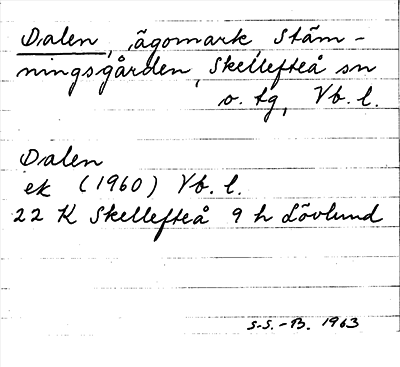 Dalen, ägomark, Stäm-
ningsgården, Skellefteå sn
o. tg, Vb. l.
Dalen
ek (1960) Vb. l.
22 K Skellefteå 9 h Lövlund
S-S.-B. 1963